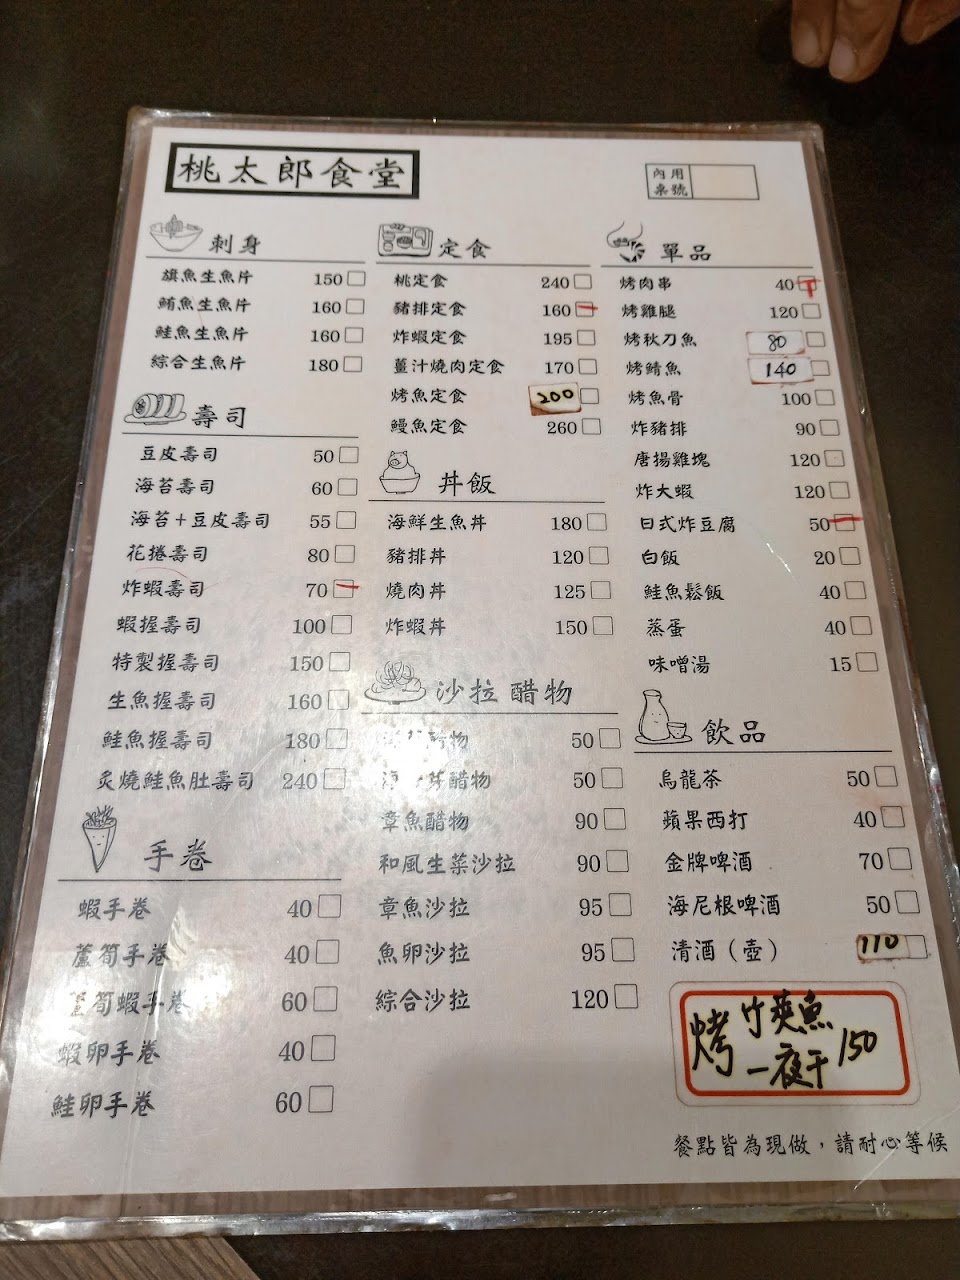 桃太郎食堂
內用
桌號
刺身
旗魚生魚片 150
鮪魚生魚片 160
鮭魚生魚片 160
綜合生魚片 180
壽司
豆皮壽司 50
海苔壽司 60
海苔+豆皮壽司 55
花捲壽司 80
炸蝦壽司 70
蝦握壽司 100
特製握壽司 150
生魚握壽司 160
鮭魚握壽司 180
炙燒鮭魚肚壽司 240
手卷
蝦手卷 40
蘆筍手卷 40
蘆筍蝦手卷 60
蝦卵手卷 40
鮭卵手卷 60
定食
桃定食 240
豬排定食 160
炸蝦定食 195
薑汁燒肉定食 170
烤魚定食 200
鰻魚定食 260
丼飯
海鮮生魚丼 180
豬排丼 120
燒肉丼 125
炸蝦丼 150
沙拉醋物
醋物 50
芽醋物 50
章魚醋物 90
和風生菜沙拉 90
章魚沙拉 95
魚卵沙拉 95
綜合沙拉 120
單品
烤肉串 40
烤雞腿 120
烤秋刀魚 80
烤鯖魚 140
烤魚骨 100
炸豬排 90
唐揚雞塊 120
炸大蝦 120
日式炸豆腐 50
白飯 20
鮭魚鬆飯 40
蒸蛋 40
味噌湯 15
飲品
烏龍茶 50
蘋果西打 40
金牌啤酒 70
海尼根啤酒 50
清酒(壺) 110
烤竹莢魚
一夜干 150
餐點皆為現做，請耐心等候